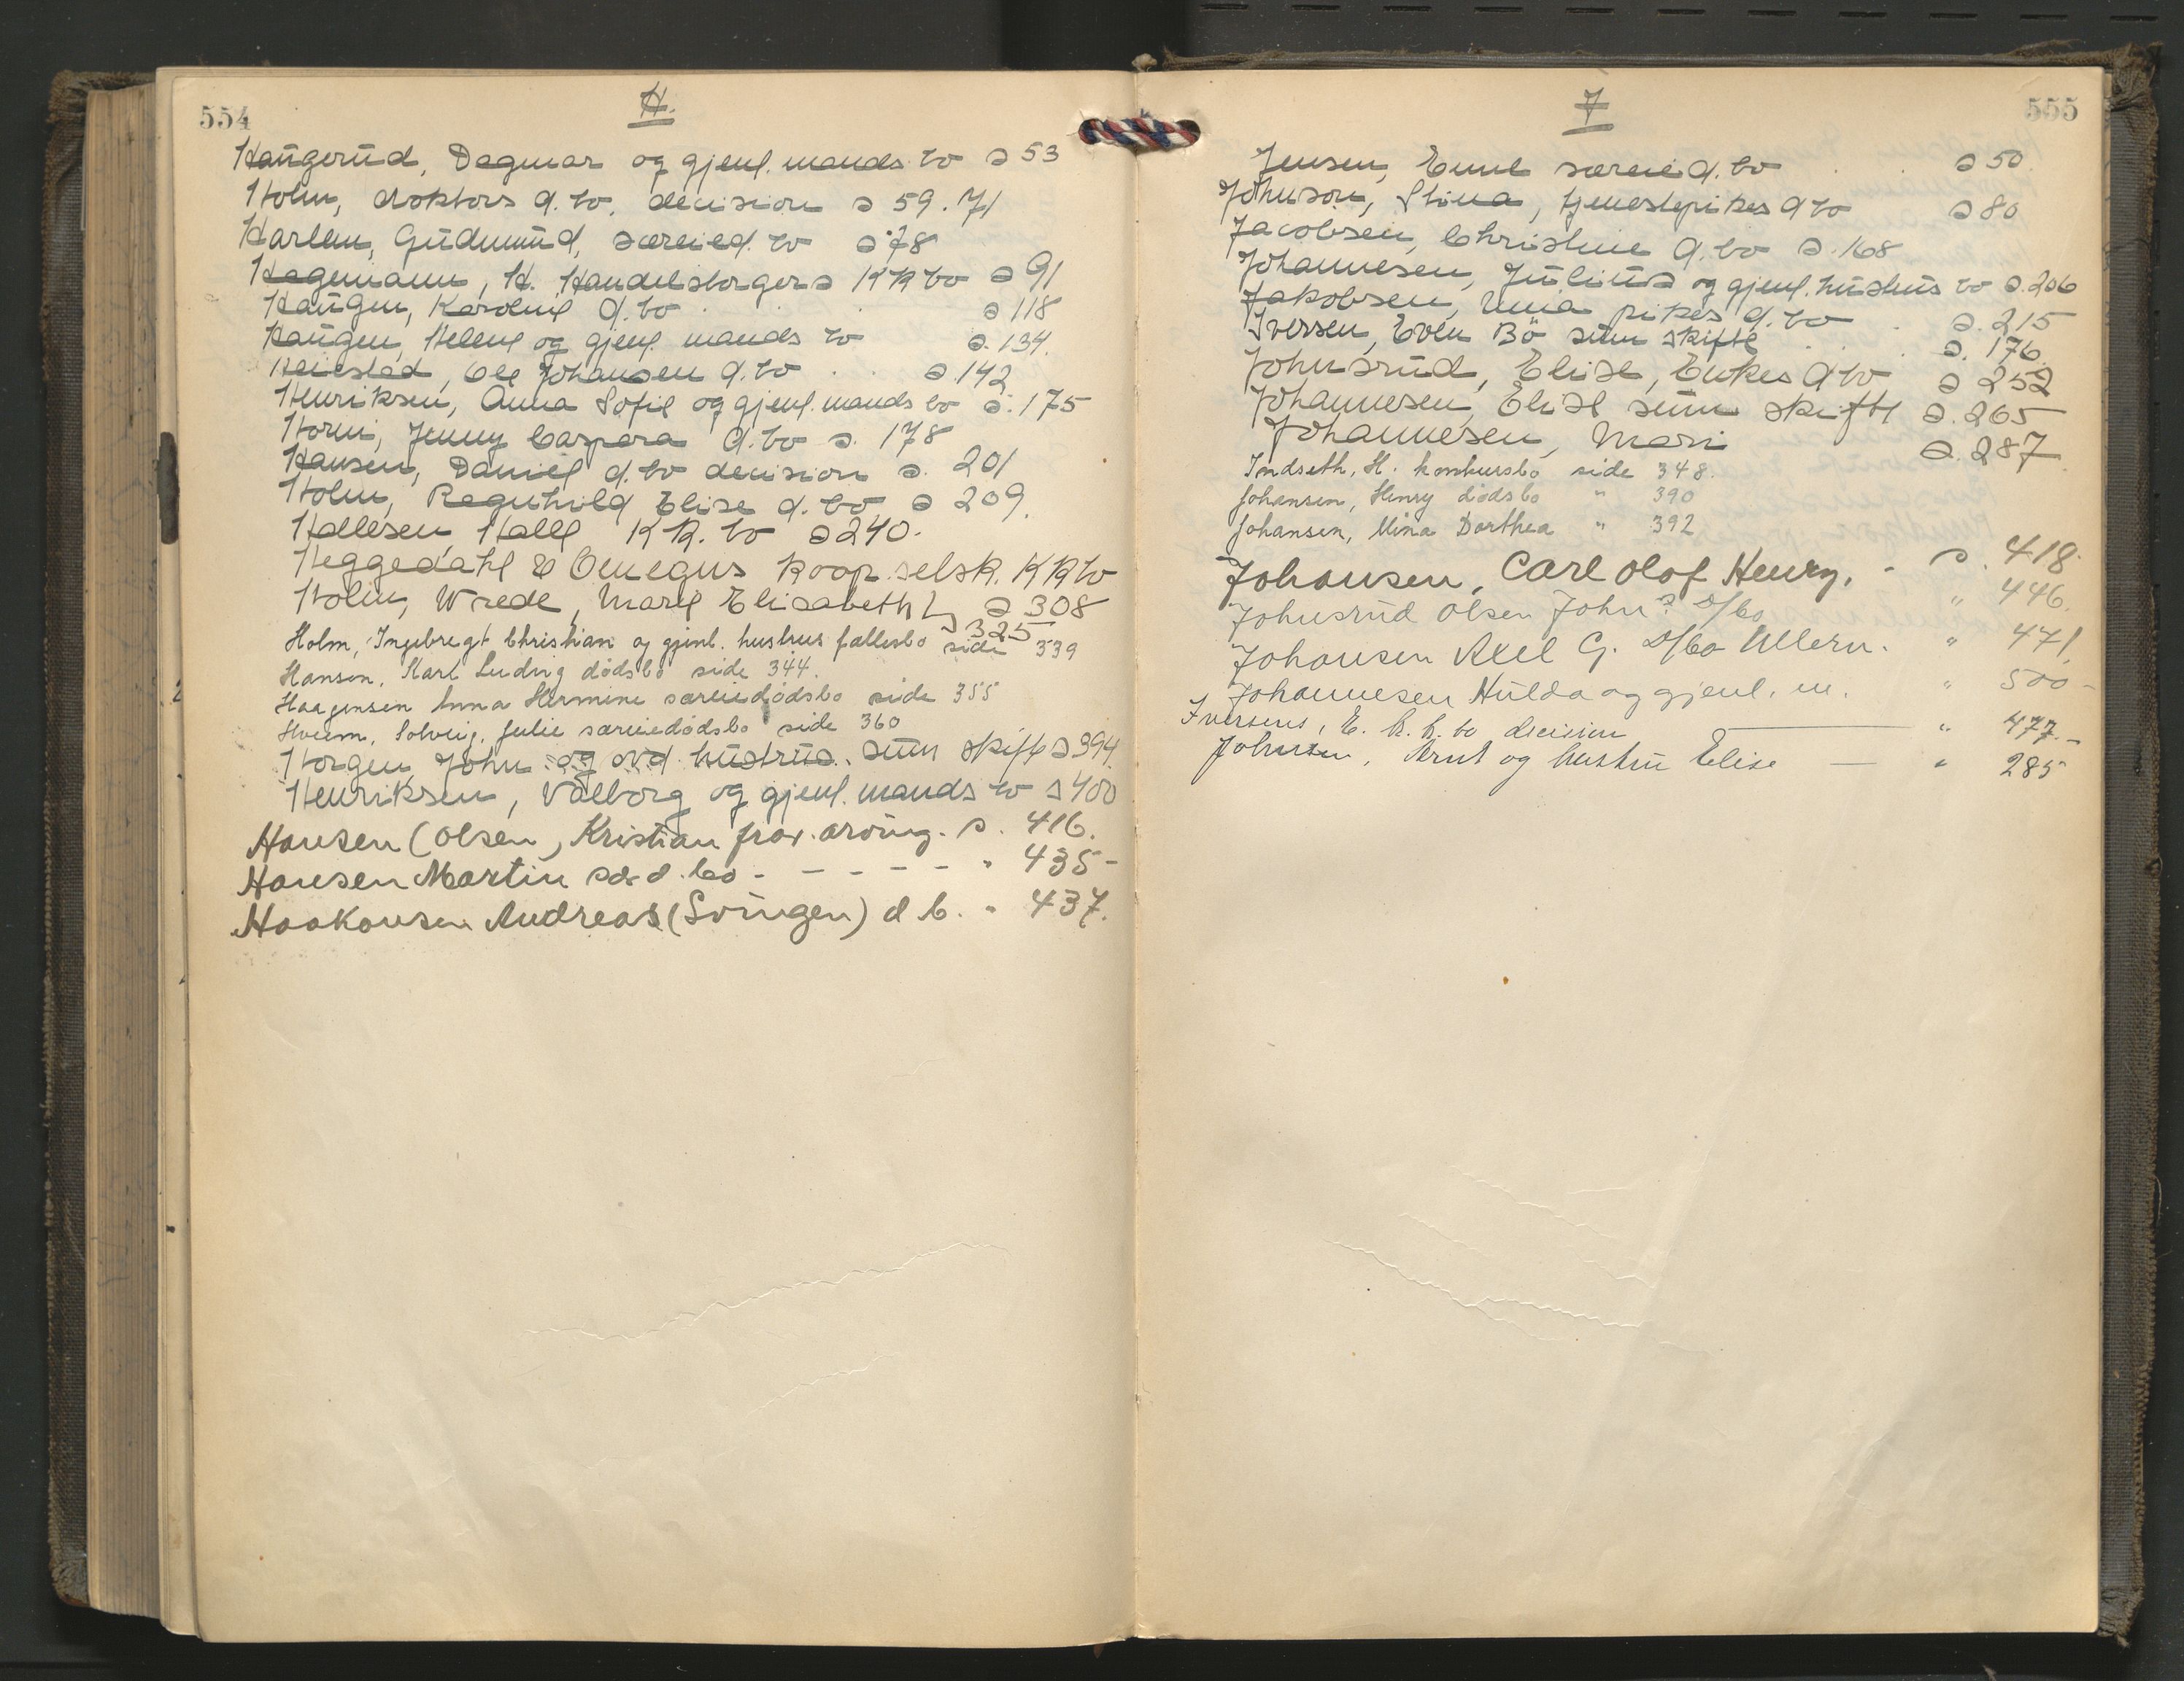 554
H.
Haugerud, Dagmar og gjenl. mands bo s 53
Holm, doktors d. bo, decision s 59. 71
Harlem, Gudmund, særeied. bo s 78
Hagemann, H. Handelsborgers KK bo s 91
Haugen, Karoline d. bo s 118
Haugen, Helene og gjenl. mands bo s. 134.
Heiestad, Ole Johansen d. bo s 142
Henriksen, Anna Sofie og gjenl. mands bo s. 175
Horni, Jenny Caspara d. bo s. 178
Hansen, Daniel d. bo decision s. 201
Holm, Regnhild Elise d. bo s 209.
Hallesen, Halle KK. bo s 240.
Heggedahl & Omegns koop. selsk. KK bo
Holm, Wrede, Marie Elisabeth s 308
325
Holm, Ingebregt Christian og gjenl. hustrus fællesbo side 339
Hansen, Karl Ludvig dødsbo side 344.
Haagensen Anna Hermine særeiedødsbo side 355
Hveem, Solveig, Julie særeiedødsbo side 360
Horgen, John og avd. hustrus. sum skifte s 394.
Henriksen, Valborg og gjenl. mands bo s 400
Hansen (Olsen, Kristian frav. arving. s. 416.
Hansen Martin sær d. bo - - - - - " 435-
Haakonsen Andreas (Svingen) d b. " 437.
J
555
Jensen, Emil særeied. bo s 50.
Johnson, Stina, tjenestepikes d bo s 80
Jacobsen, Christine d. bo s. 168
Johannesen, Julius og gjenl. hustrus bo s. 206
Jakobsen, Una pikes d. bo s. 215
Iversen, Even Bö sum skifte s. 176.
Johnsrud, Elise, Enkes d bo s 252
Johannesen, Elise sum skifte s. 265
Johannesen, Mari s. 287
Indseth, H. konkursbo side 348.
Johansen, Henry dødsbo " 390
Johansen, Mina Dorthea " 392
Johansen, Carl Olof Henry. - s. 418.
Johnsrud Olsen John? d/bo " 446.
Johansen Axel G. d/bo Ullern. " 471.
Johannesen Hulda og gjenl. m. " 500-
Iversens, E. k. k. bo decision " 477.-
Johnsen, Arnt og hustru Elise — " 285